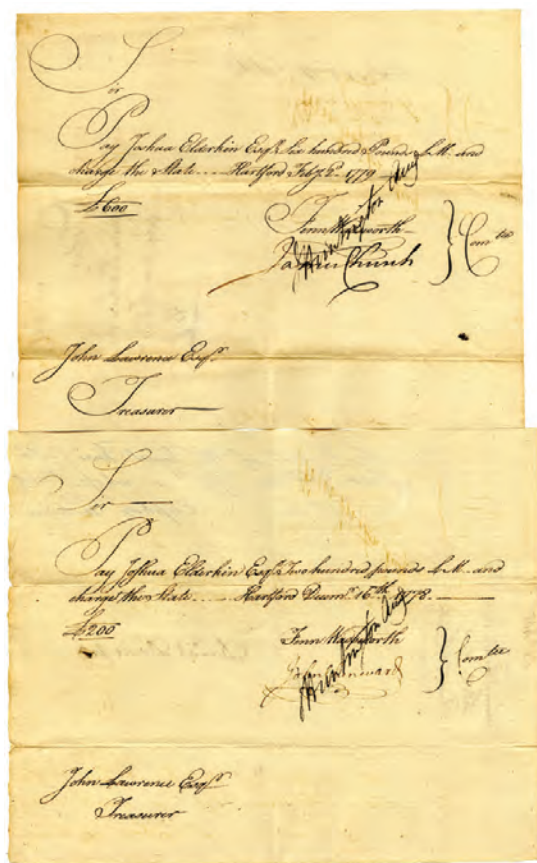 Sir
Pay Joshua Elderkin Esqr. Six hundred Pounds L.M. and
change the State.... Hartford Feby 2d. 1779
£600
Fenn Wadsworth
James Church
Comtee
Huntington
John Lawrence Esqr.
Treasurer
Sir
Pay Joshua Elderkin Esqr. Two hundred pounds L.M. and
change the State.... Hartford Decmr. 16th. 1778.
£200
Fenn Wadsworth
Comtee
Huntington
John Lawrence Esqr.
Treasurer